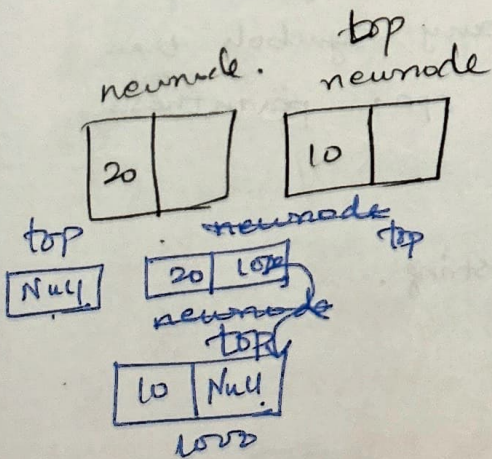 top
newnode. newnode
20 10
newnode
top top
Null 20 1000
newnode
top
10 Null
1000
string.